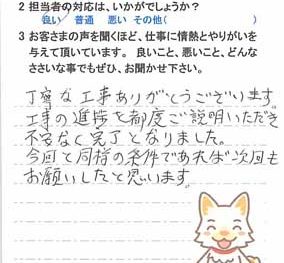 2 担当者の対応は、いかがでしょうか？
良い 普通 悪い その他( )
3 お客さまの声を聞くほど、仕事に情熱とやりがいを
与えて頂いています。 良いこと、悪いこと、どんな
ささいな事でもぜひ、お聞かせ下さい。
丁寧な工事ありがとうございます。
工事の進捗を都度ご説明いただき
不安なく完了となりました。
今回と同様の条件であれば次回も
お願いしたと思います。